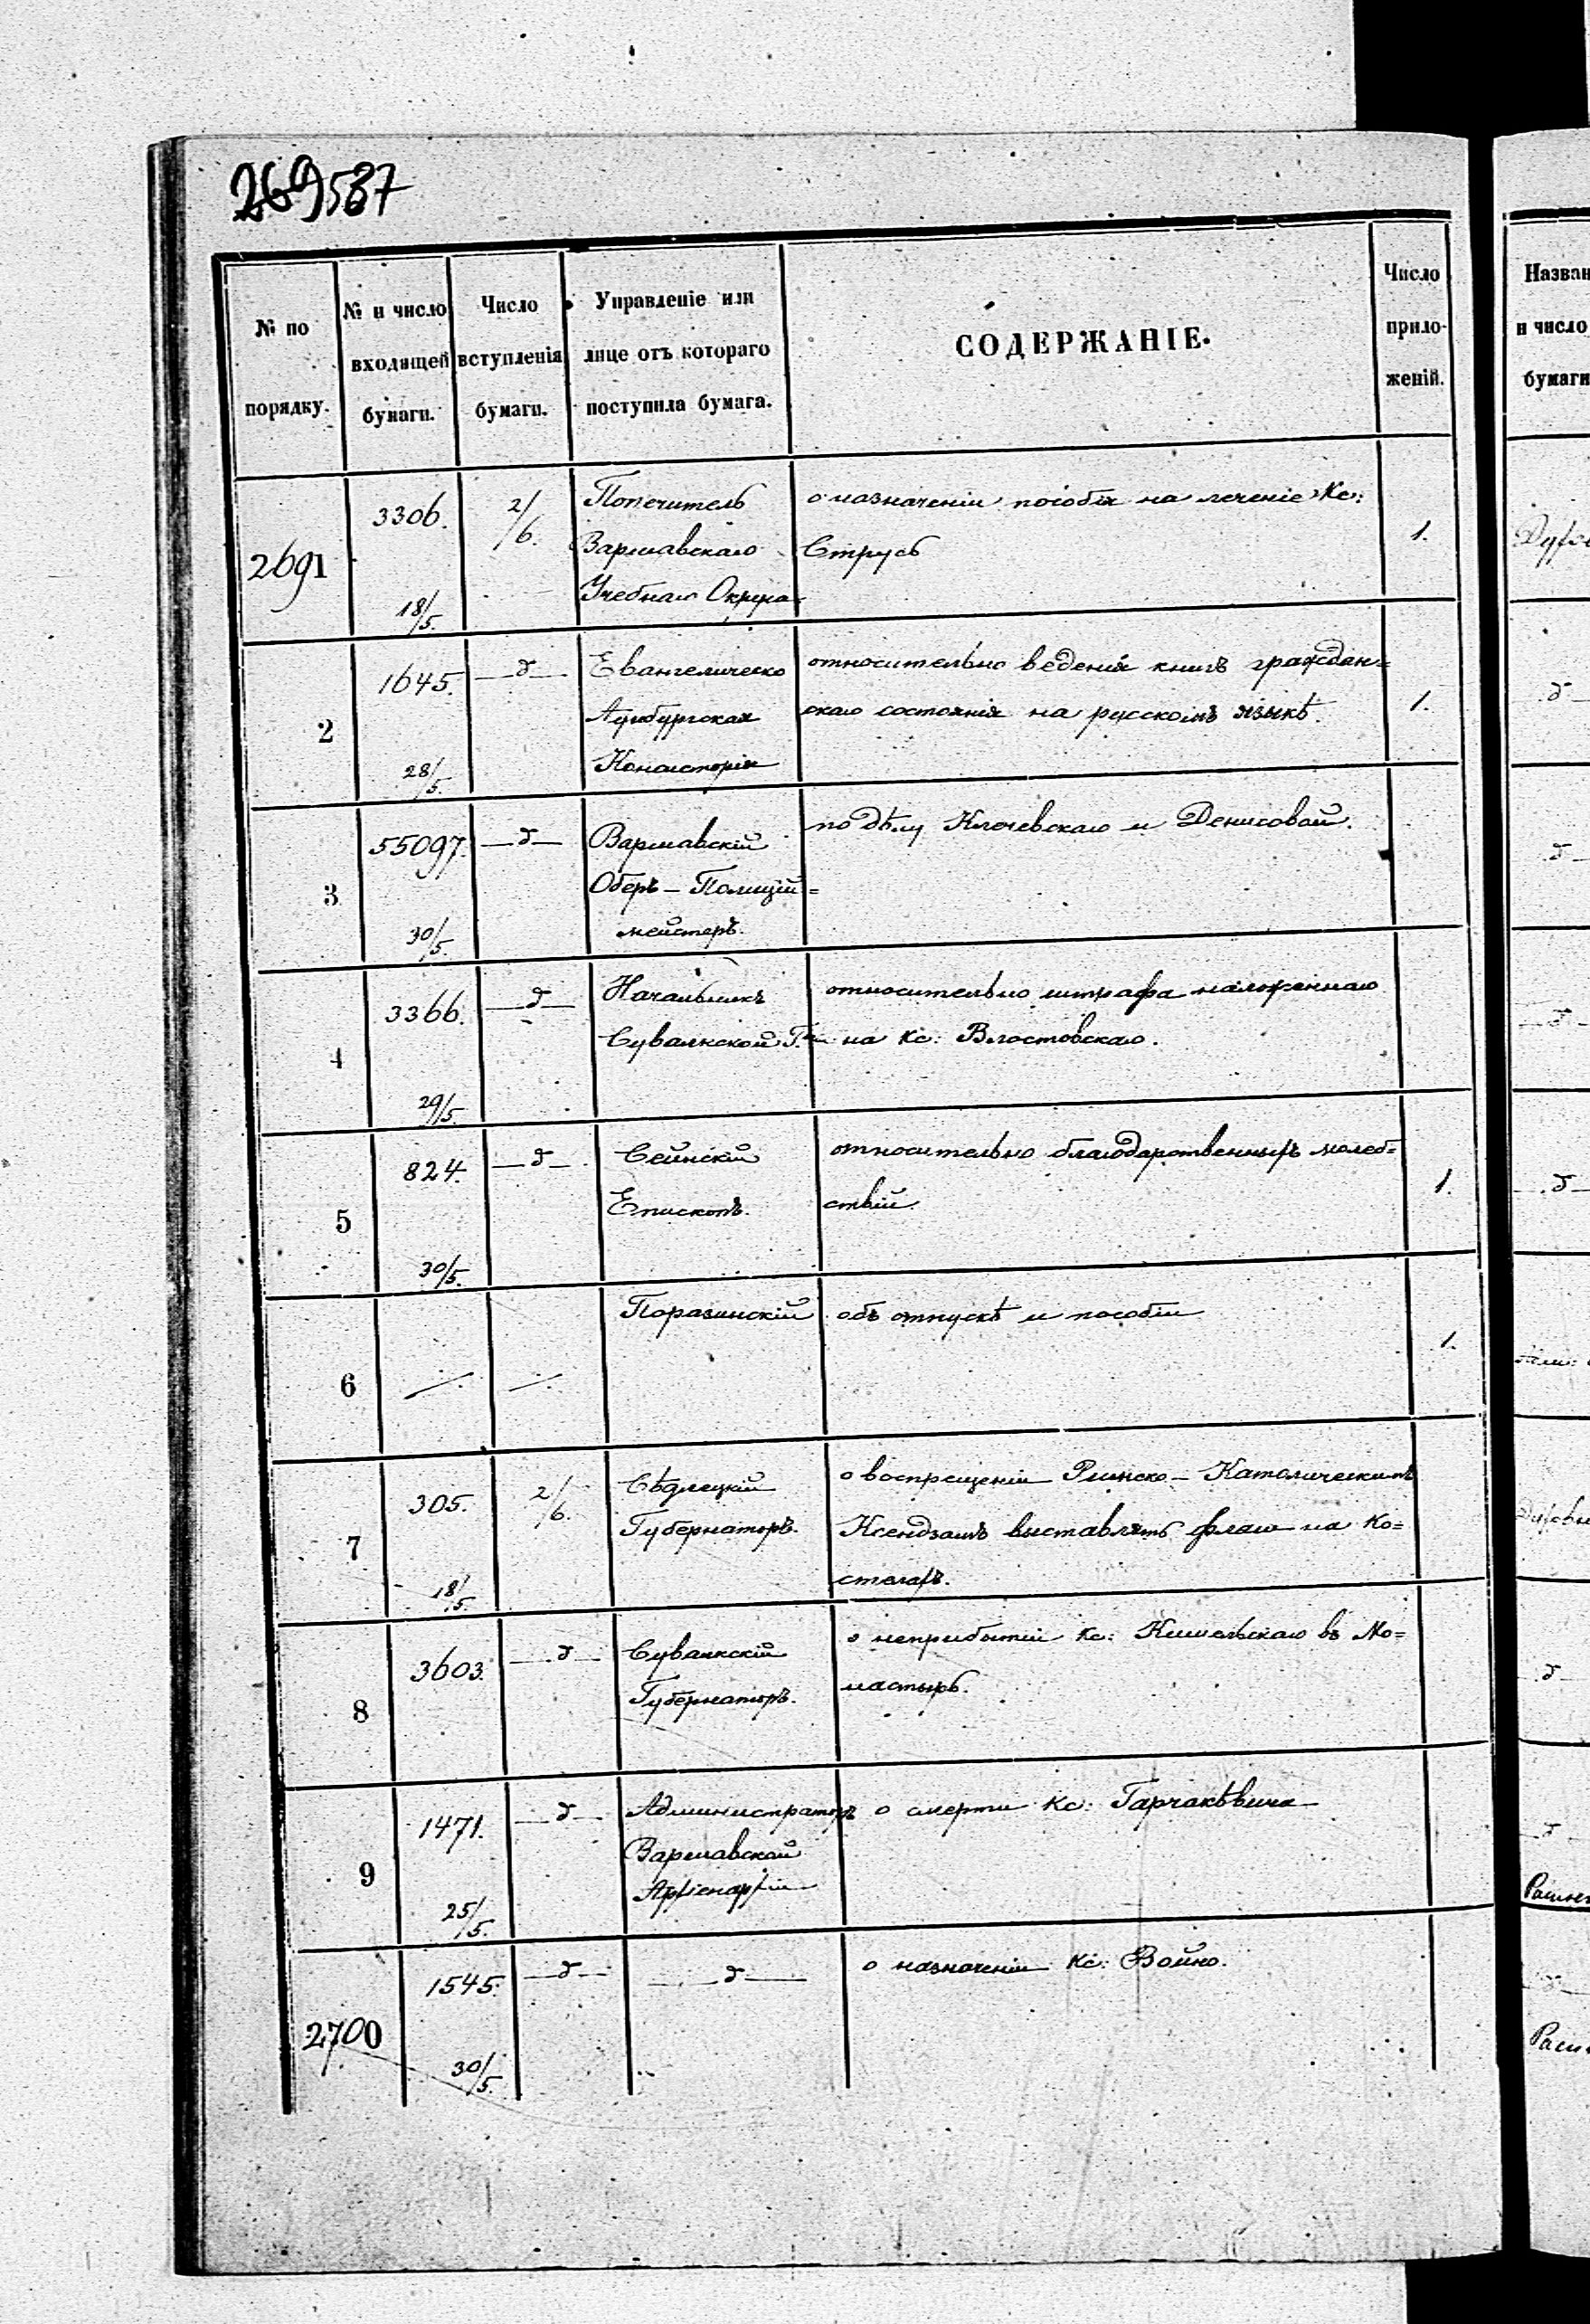 269537
№ по порядку.
№ и число входящей бумаги.
Число вступленія бумаги.
Управленіе или лице отъ котораго поступила бумага.
СОДЕРЖАНІЕ.
Число прило-
женій.
2691
3306.
18/5.
2/6.
Попечитель
Варшавскаго
Учебнаго Округа
о назначеніи пособія на леченіе Кс:
Струсь
1.
2
1645.
28/5.
—д—
Евангелическо
Аугсбургская
Консисторія
относительно веденія книгъ граждан=
скаго состоянія на русскомъ языкѣ.
1.
3
55097.
30/5.
—д—
Варшавскій
Оберъ-Полиций=
мейстеръ.
по дѣлу Ключевскаго и Денисовой.
4
3366.
29/5.
—д—
Начальникъ
Сувалкской Г.
относительно штрафа наложеннаго
на Кс: Влостовскаго.
5
824.
30/5.
—д—
Сейнскій
Епископъ.
относительно благодарственныхъ молеб=
ствій.
1.
6
Поразинскій
объ отпускѣ и пособіи
1.
7
305.
18/5.
2/6.
Сѣдлецкій
Губернаторъ.
о воспрещеніи Римско-Католическимъ
Ксендзамъ выставлять флаги на Ко=
стелахъ.
8
3603.
—д—
Сувалкскій
Губернаторъ.
о неприбытіи Кс: в̾ Мо=
настырь.
9
1471.
25/5.
—д—
Администраторъ
Варшавской
Архіепархіи
о смерти Кс:
2700
1545.
30/5.
—д—
—д—
о назначеніи Кс: Войно.
Назван
и число
бумаги